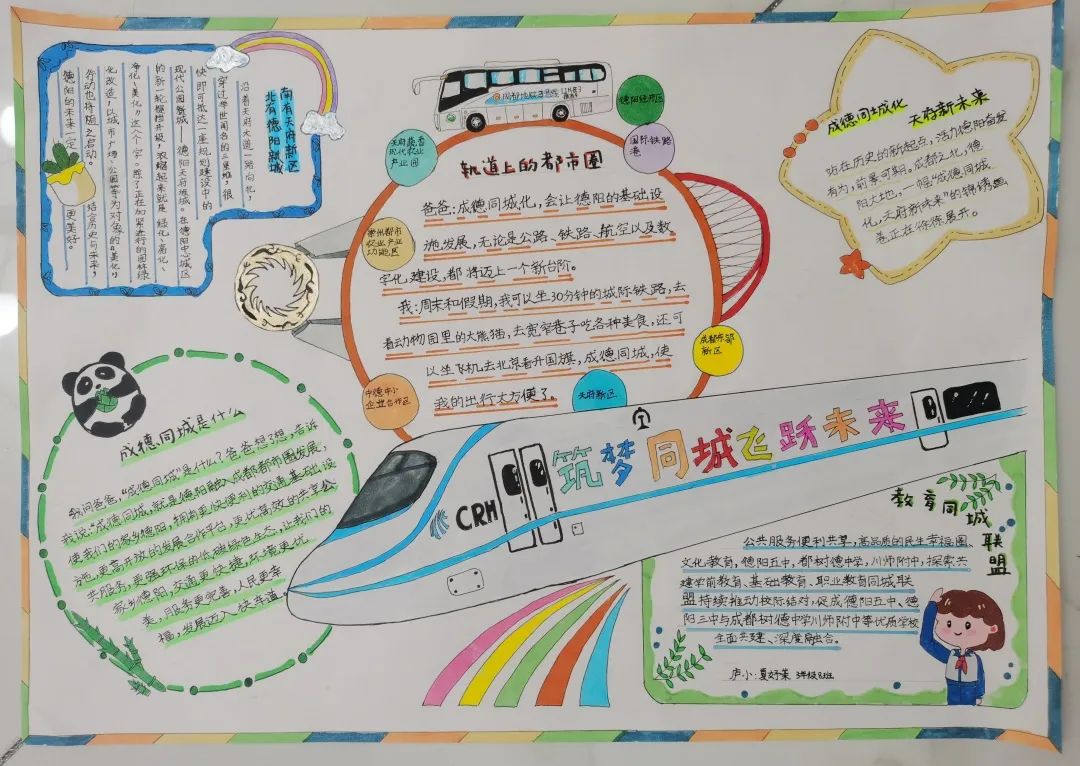 南有天府新区
北有德阳新城
沿着天府大道一路向北，
穿过举世闻名的三星堆，很
快即可抵达一座规划建设中的
现代公园餐城——德阳天府旌城。在德阳中心城区
的新一轮提档升级，浓缩起来就是“绿化、亮化、
净化、美化”这八个字，除了正在加紧进行的园林绿
化改造，以城市广场、公园等为对象的“美化”
行动也将随之启动。结合历史与未来，
德阳的未来一定
更美好。
天府蔬香
现代农业
产业园
德阳经开区
国际铁路
港
崇州都市
农业产业
功能区
中德中小
企业合作区
成都东部
新区
天府新区
轨道上的都市圈
爸爸：成德同城化，会让德阳的基础设
施发展，无论是公路、铁路、航空以及数
字化建设，都将迈上一个新台阶。
我：周末和假期，我可以坐30分钟的城际铁路，去
看动物园里的大熊猫，去宽窄巷子吃各种美食，还可
以坐飞机去北京看升国旗，成德同城，使
我的出行太方便了。
成德同城化 天府新未来
站在历史的新起点，活力德阳奋发
有为，前景可期。成都之北，德
阳大地，一幅“成德同城
化，天府新未来”的锦绣画
卷正在徐徐展开。
成德同城是什么
我问爸爸，“成德同城”是什么？爸爸想了想，告诉
我说：“成德同城，就是德阳融入成都都市圈发展，
使我们的家乡德阳，拥有更快便利的交通基础设
施，更高开放的发展合作平台，更优高效的共享公
共服务，更强环保的低碳绿色生态，让我们的
家乡德阳，交通更快捷，环境更优
美，服务更完善，人民更幸
福，发展迈入快车道。
CRH
筑梦同城飞跃未来
教育同城
联盟
公共服务便利共享，高品质的民生幸福圈、
文化教育，德阳五中，都树德中学，川师附中，探索共
建学前教育、基础教育、职业教育同城联
盟持续推动校际结对，促成德阳五中、德
阳三中与成都树德中学川师附中等优质学校
全面共建、深度融合。
庐小：夏妤茉 3年级8班